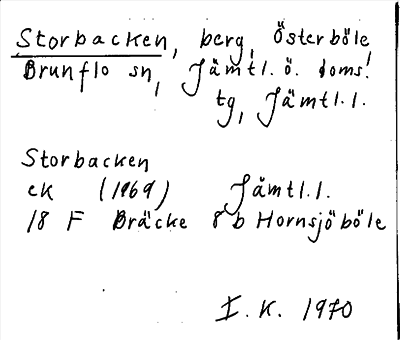 Storbacken, berg, Österböle
Brunflo sn, Jämtl. ö. doms!
tg, Jämtl. l.
Storbacken
ek (1969) Jämtl. l.
18 F Bräcke 8 b Hornsjöböle
I. K. 1970